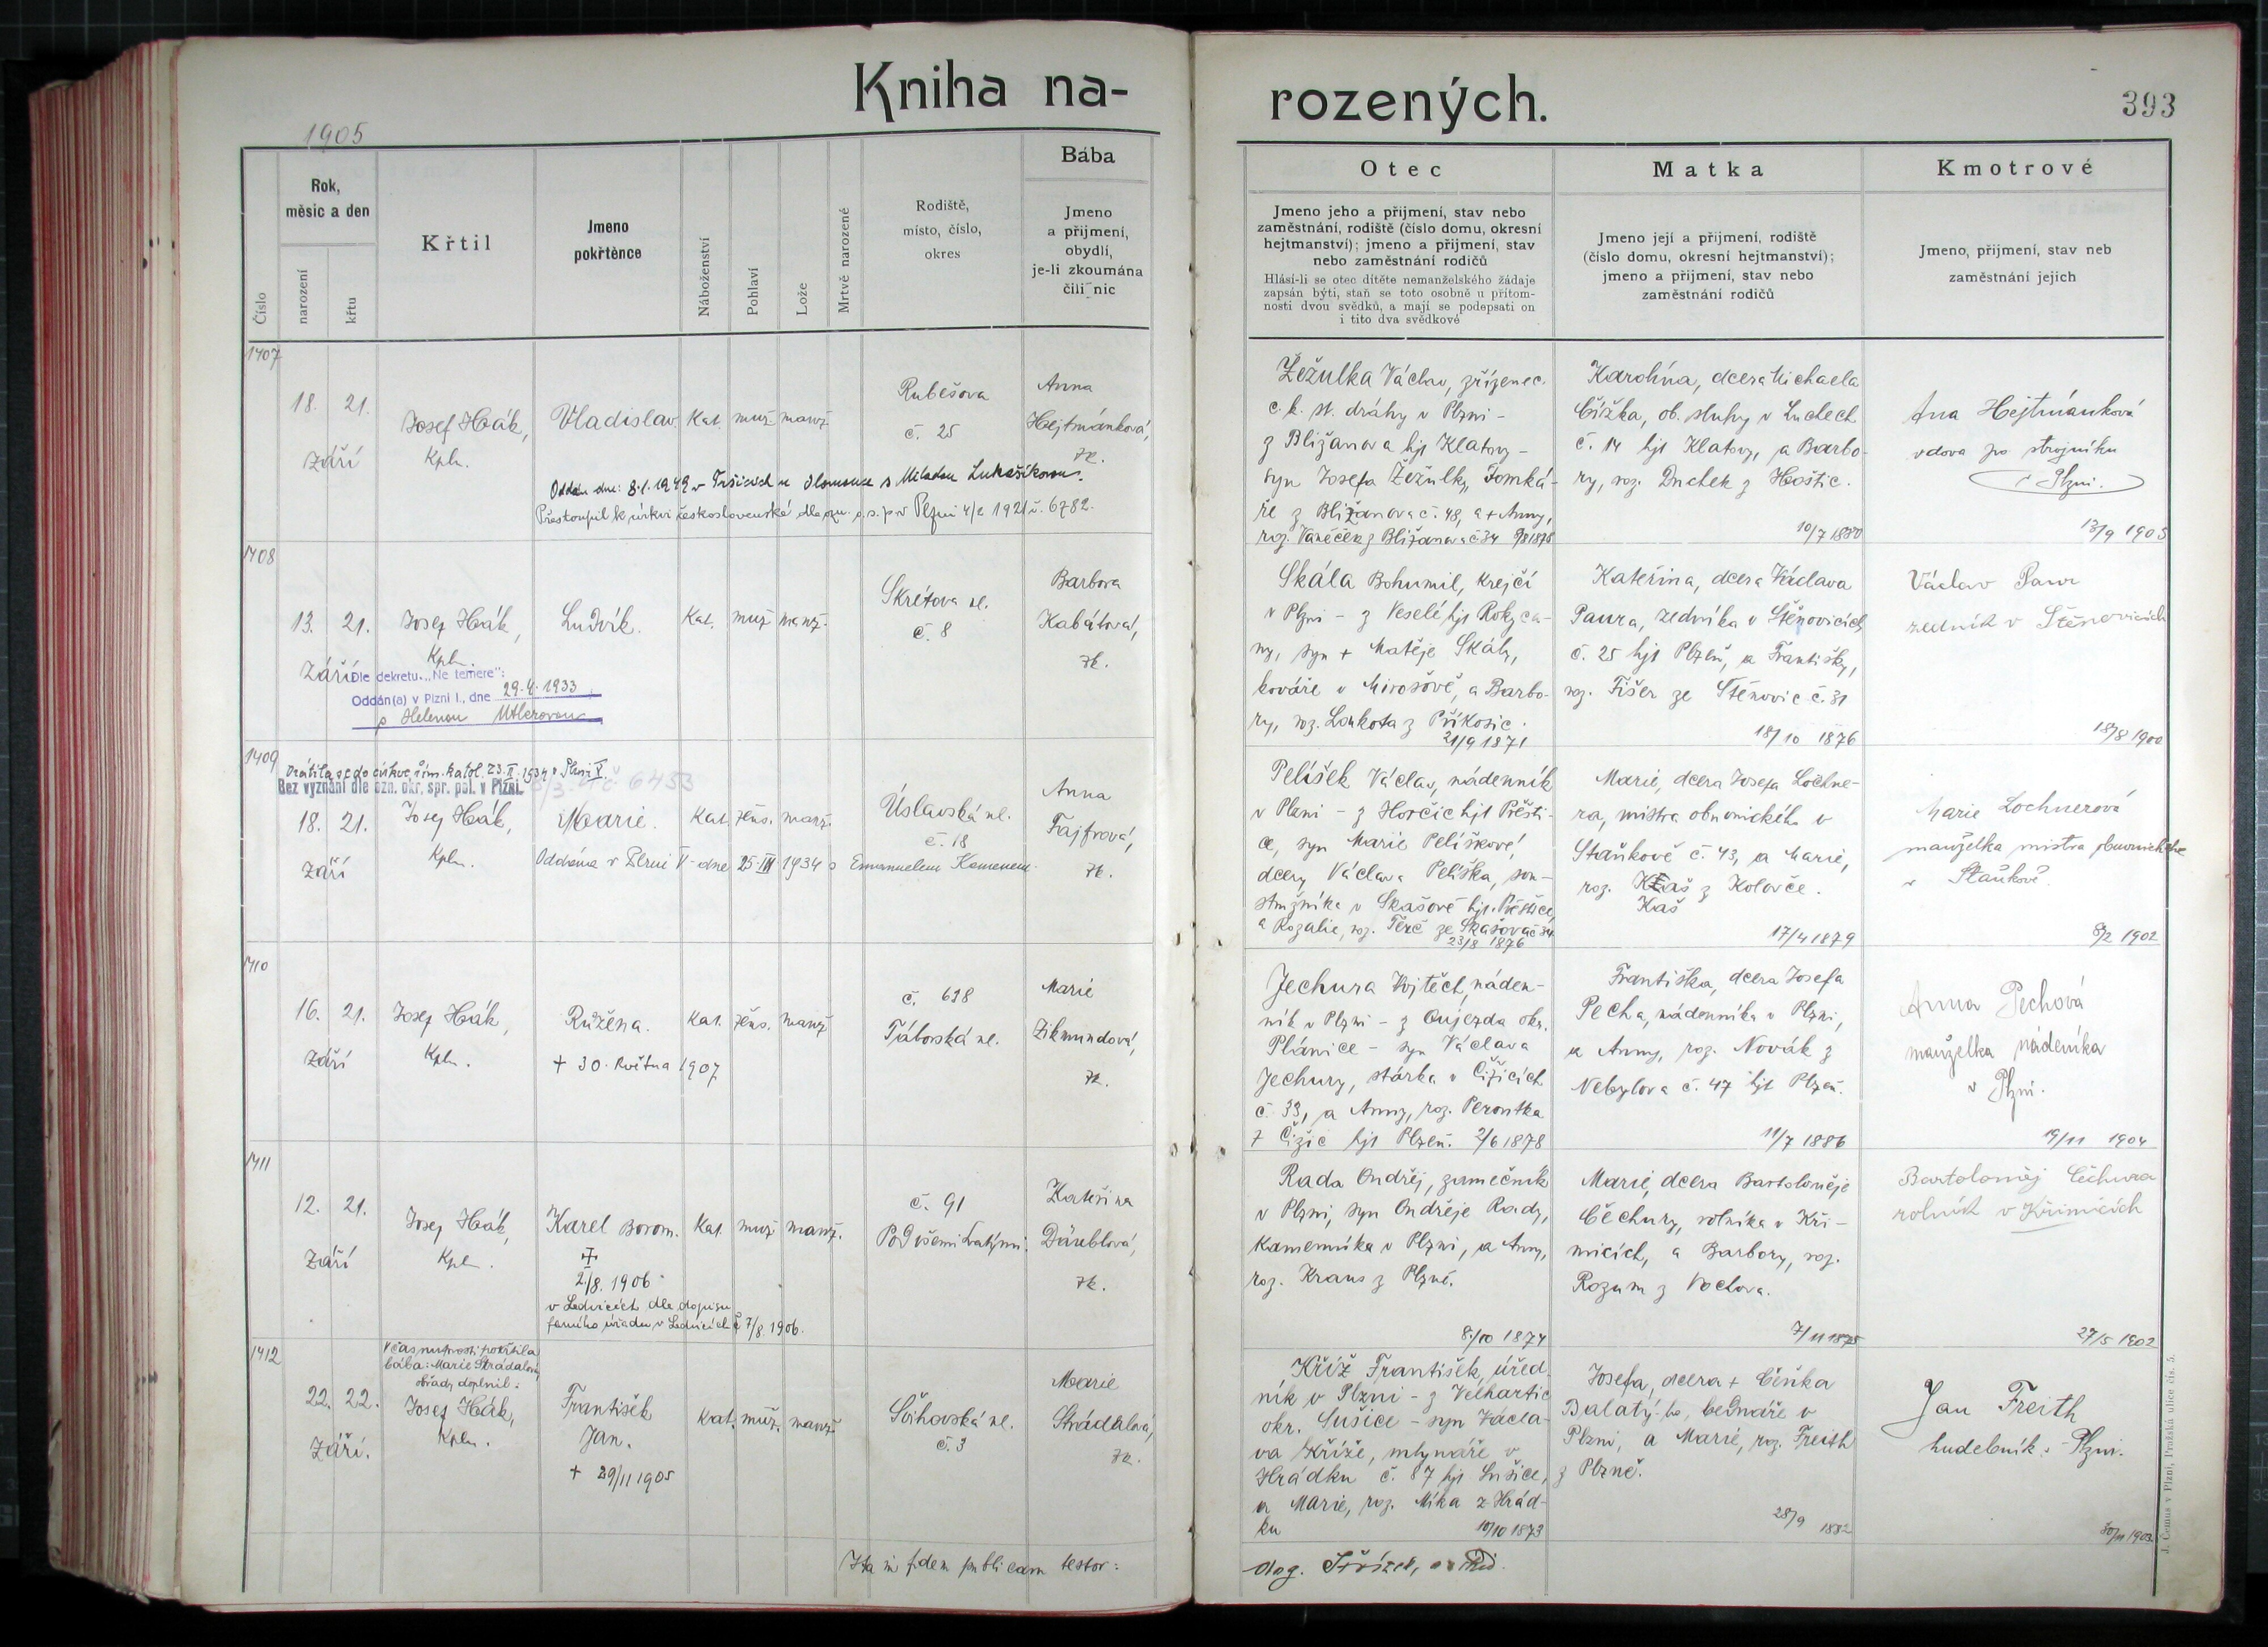 Kniha na-
rozených.
393
1905
Číslo
Rok,
měsíc a den
narození
křtu
Křtil
Jmeno
pokřtěnce
Náboženství
Pohlaví
Lože
Mrtvě narozené
Rodiště,
místo, číslo,
okres
Bába
Jmeno
a přijmení,
obydlí,
je-li zkoumána
čili nic
Otec
Jmeno jeho a přijmení, stav nebo
zaměstnání, rodiště (číslo domu, okresní
hejtmanství); jmeno a přijmení, stav
nebo zaměstnání rodičů
Hlásí-li se otec dítěte nemanželského žádaje
zapsán býti, staň se toto osobně u přítom-
nosti dvou svědků, a mají se podepsati on
i tito dva svědkové
Matka
Jmeno její a přijmení, rodiště
(číslo domu, okresní hejtmanství);
jmeno a přijmení, stav nebo
zaměstnání rodičů
Kmotrové
Jmeno, přijmení, stav neb
zaměstnání jejich
1407
18. 21.
Září
Josef Hák,
Kpln.
Vladislav.
Kat. muž. manž.
Rubešova
č. 25
Anna
Hejtmánková,
zk.
Oddán dne: 8.1.1949 v Tršicích u Olomouce s Miladou Lukašíkovou.
Přestoupil k církvi československé dle ozn. o.s.p. v Plzni 4/2 1921 č. 6782.
Žežulka Václav, zřízenec
c. k. st. dráhy v Plzni -
z Bližanova hjt Klatovy -
syn Josefa Žežulky, domká-
ře z Bližanova č. 48, a + Anny,
roz. Vaněček z Bližanova č 34
Karolína, dcera Michaela
Čížka, ob. sluhy v Luchech
č. 14 hjt Klatovy, a Barbo-
ry, roz. Duchek z Hoštic.
10/7 1880
Ana Hejtmánková
vdova po strojníku
v Plzni.
13/9 1905
1408
13. 21.
Září
Josef Hák,
Kpln.
Ludvík.
Kat. muž. manž.
Skrétova ul.
č. 8
Barbora
Kabátová,
zk.
Dle dekretu „Ne temere":
Oddán(a) v Plzni I., dne 29.4.1933
s Helenou
Skála Bohumil, krejčí
v Plzni - z Veselé hjt Rokyca-
ny, syn + Matěje Skály,
kováře v Mirošově, a Barbo-
ry, roz. Loukota z Příkosic.
21/9 1871
Kateřina, dcera Václava
Paura, zedníka v Štěnovicích
č. 25 hjt Plzeň, a Františky,
roz. Fišer ze Štěnovic č. 31
18/10 1876
Václav Paur
zedník v Štěnovicích
18/8 1900
1409
Vrátila se do církve řím. katol. 23.II. 1934 v Plzni V.
Bez vyznání dle ozn. okr. spr. pol. v Plzni.
6453
18. 21.
Září
Josef Hák,
Kpln.
Marie.
Kat. žens. manž.
Úslavská ul.
č. 18
Anna
Fajfrová,
zk.
Oddána v Plzni V - dne 25-III 1934 s Emanuelem Kamenem.
Pelíšek Václav, nádenník
v Plzni - z Horčic hjt Přešti-
ce, syn Marie Pelíškové,
dcery Václava Pelíška, sou-
stružníka v Skašově hjt. Přeštice,
a Rozalie, roz. Terč ze Skašova č 34
23/8 1876
Marie, dcera Josefa Lochne-
ra, mistra obuvnického v
Staňkově č. 43, a Marie,
roz. z Koloveče.
Kaš
17/4 1879
Marie Lochnerová
manželka mistra obuvnického
v Staňkově.
8/2 1902
1410
16. 21.
Září
Josef Hák,
Kpln.
Růžena.
Kat. žens. manž.
+ 30. Května 1907
č. 618
Táborská ul.
Marie
Zikmundová,
zk.
Jechura Vojtěch, náden-
ník v Plzni - z Oujezda okr.
Plánice - syn Václava
Jechury, stárka v Čižicích
č. 33, a Anny, roz. Peroutka
z Čižic hjt Plzeň. 2/6 1878
Františka, dcera Josefa
Pecha, nádenníka v Plzni,
a Anny, roz. Novák z
Nebylova č. 47 hjt Plzeň.
11/7 1886
Anna Pechová
manželka nádeníka
v Plzni.
19/11 1904
1411
12. 21.
Září
Josef Hák,
Kpln.
Karel Borom.
Kat. muž. manž.
č. 91
Pod všemi svatými
Kateřina
Däublová,
zk.
+
2./8. 1906
v Ledvicích dle dopisu
farního úřadu v Ledvicích č 7/8. 1906.
Rada Ondřej, zámečník
v Plzni, syn Ondřeje Rady,
kameníka v Plzni, a Anny,
roz. Kraus z Plzně.
8/10 1874
Marie, dcera Bartoloměje
Čechury, rolníka v Kři-
micích, a Barbory, roz.
Rozum z Vochova.
7/11 1875
Bartoloměj Čechura
rolník v Křimicích
27/5 1902
1412
V čas nutnosti pokřtila
bába: Marie Strádalová
obřady doplnil:
22. 22.
Září.
Josef Hák,
Kpln.
František
Jan.
+ 29/11 1905
Kat. muž. manž.
Švihovská ul.
č. 3
Marie
Strádalová,
zk.
Kříž František, úřed-
ník v Plzni - z Velhartic
okr. Sušice - syn Václa-
va Kříže, mlynáře v
Hrádku č. 87 hjt Sušice,
a Marie, roz. Míka z Hrád-
ku 10/10 1873
Josefa, dcera + Čeňka
Balatý-ho, bednáře v
Plzni, a Marie, roz. Freith
z Plzně.
28/9 1882
Jan Freith
hudebník v Plzni.
30/11 1903
Ita in fidem publicam testor:
J. Čemus v Plzni, Pražská ulice čís. 5.